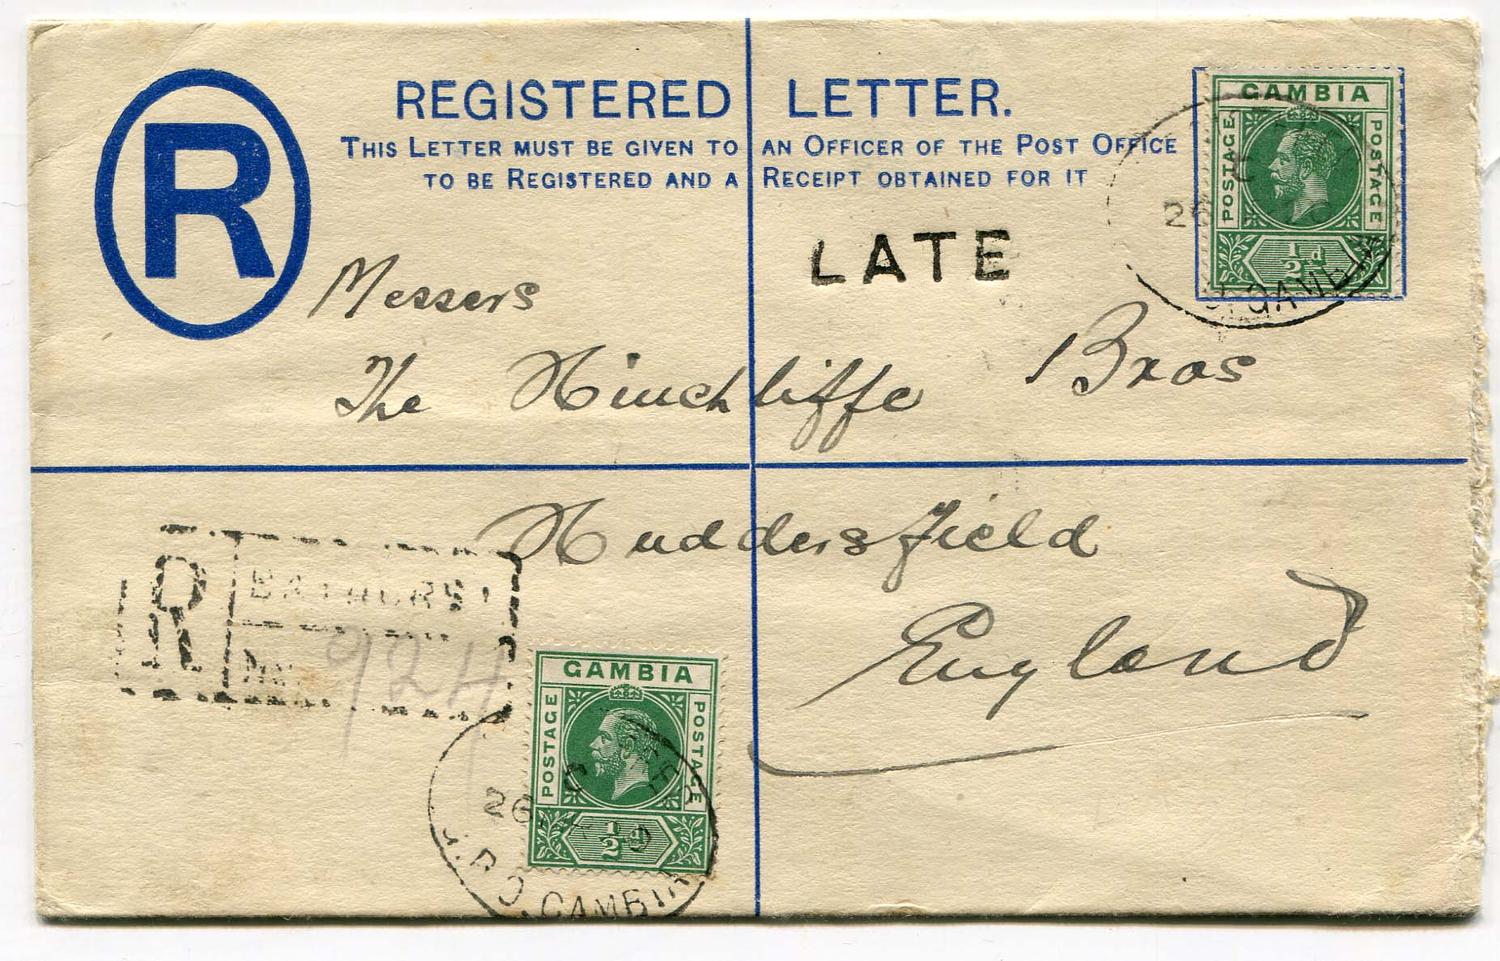 R
REGISTERED LETTER.
THIS LETTER MUST BE GIVEN TO AN OFFICER OF THE POST OFFICE
TO BE REGISTERED AND A RECEIPT OBTAINED FOR IT
GAMBIA
POSTAGE
POSTAGE
½d
26
GAMBIA
LATE
Messers
The Hinchliffe Bros
Huddersfield
England
R
BATHURST
No.
924
GAMBIA
POSTAGE
POSTAGE
½d
C
26
G.P.O. GAMBIA